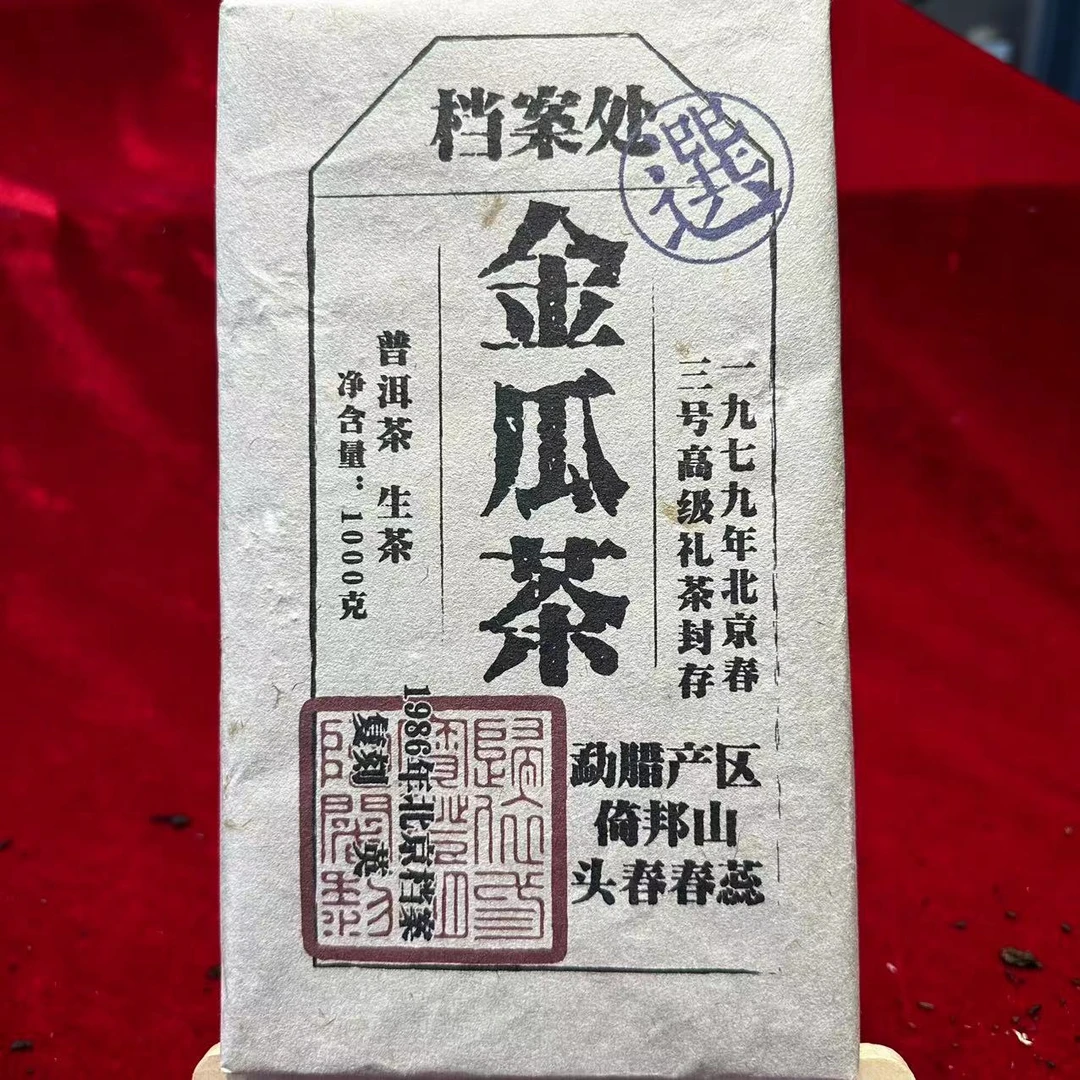 档案处
選
金瓜茶
一九七九年北京春
三号高级礼茶封存
普洱茶 生茶
净含量：1000克
勐腊产区
倚邦山
头春春蕊
1986年北京档案
复刻 黄